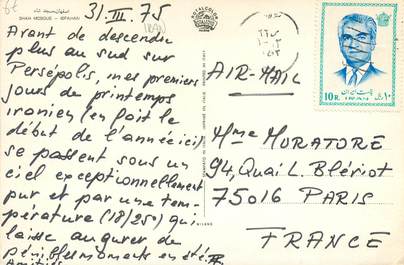 اصفهان - مسجد شاه
SHAH MOSQUE - ISFAHAN
31.III.75
(IRAN)
Avant de descendre
plus au sud sur
Persépolis, mes premiers
jours de printemps
iranien (en fait le
début de l'année ici)
se passent sous un
ciel exceptionnellement
pur et par une tem-
pérature (18/25°) qui
laisse augurer de
pénibles moments en été.
Amitiés
AIR-MAIL
10R.
IRAN
Mme MURATORE
94, Quai L. Blériot
75016 PARIS
FRANCE